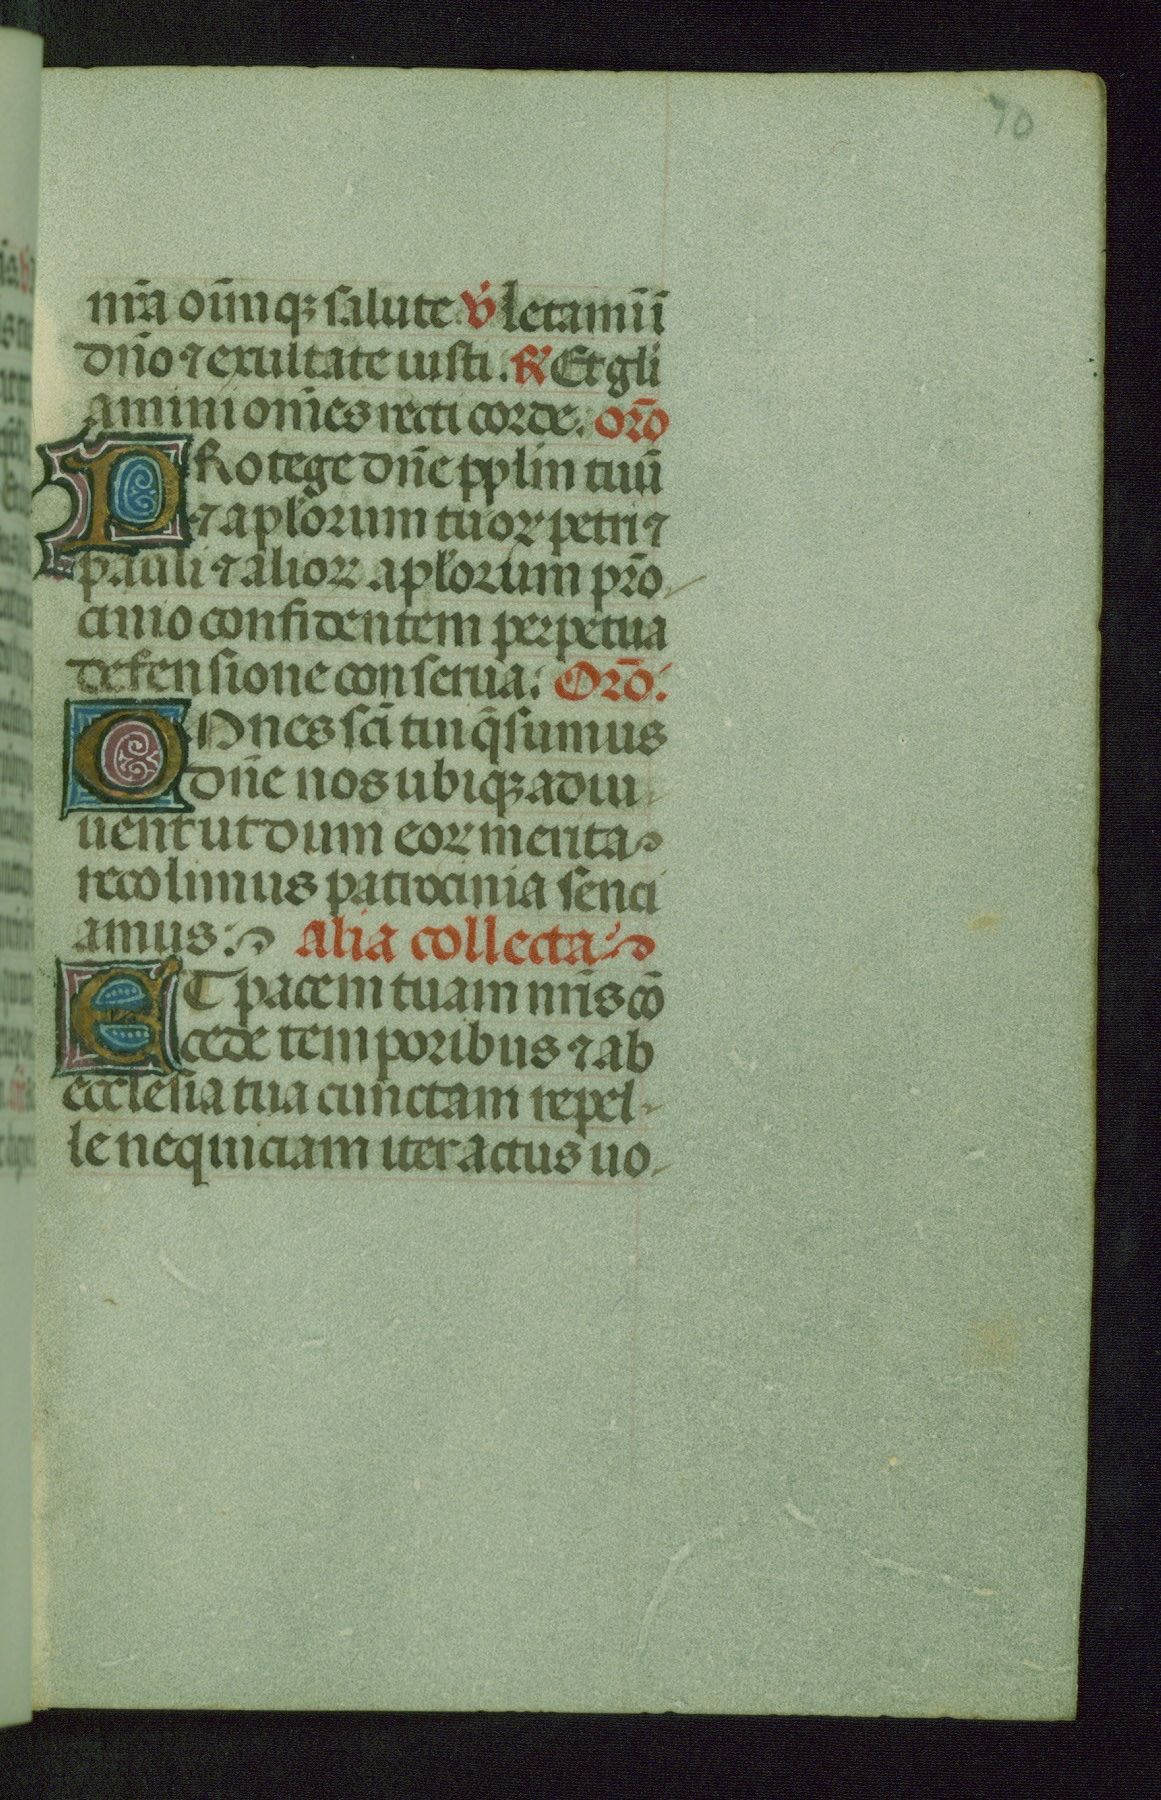 70
nr̄a oīm̄qꝫ salute. v̄ letamīī
dn̄o ⁊ exultate iusti. R̄ Et gli
amini om̄es recti corde. or̄o
PRotege dn̄e pplm̄ tuū
⁊ apl'orum tuoꝝ petri ⁊
pauli ⁊ alioꝝ apl'orum pr̄o
cinio confidentem perpetua
defensione conserua. Or̄o.
OMnes sc̄i tui q̄sumus
dn̄e nos ubiqꝫ adiu
uent ut dum eoꝝ merita
recolimus patrocinia senci
amus. Alia collecta
ET pacem tuam nr̄is cō
cede temporibus ⁊ ab
ecclesia tua cunctam repel-
le nequiciam iter actus uo